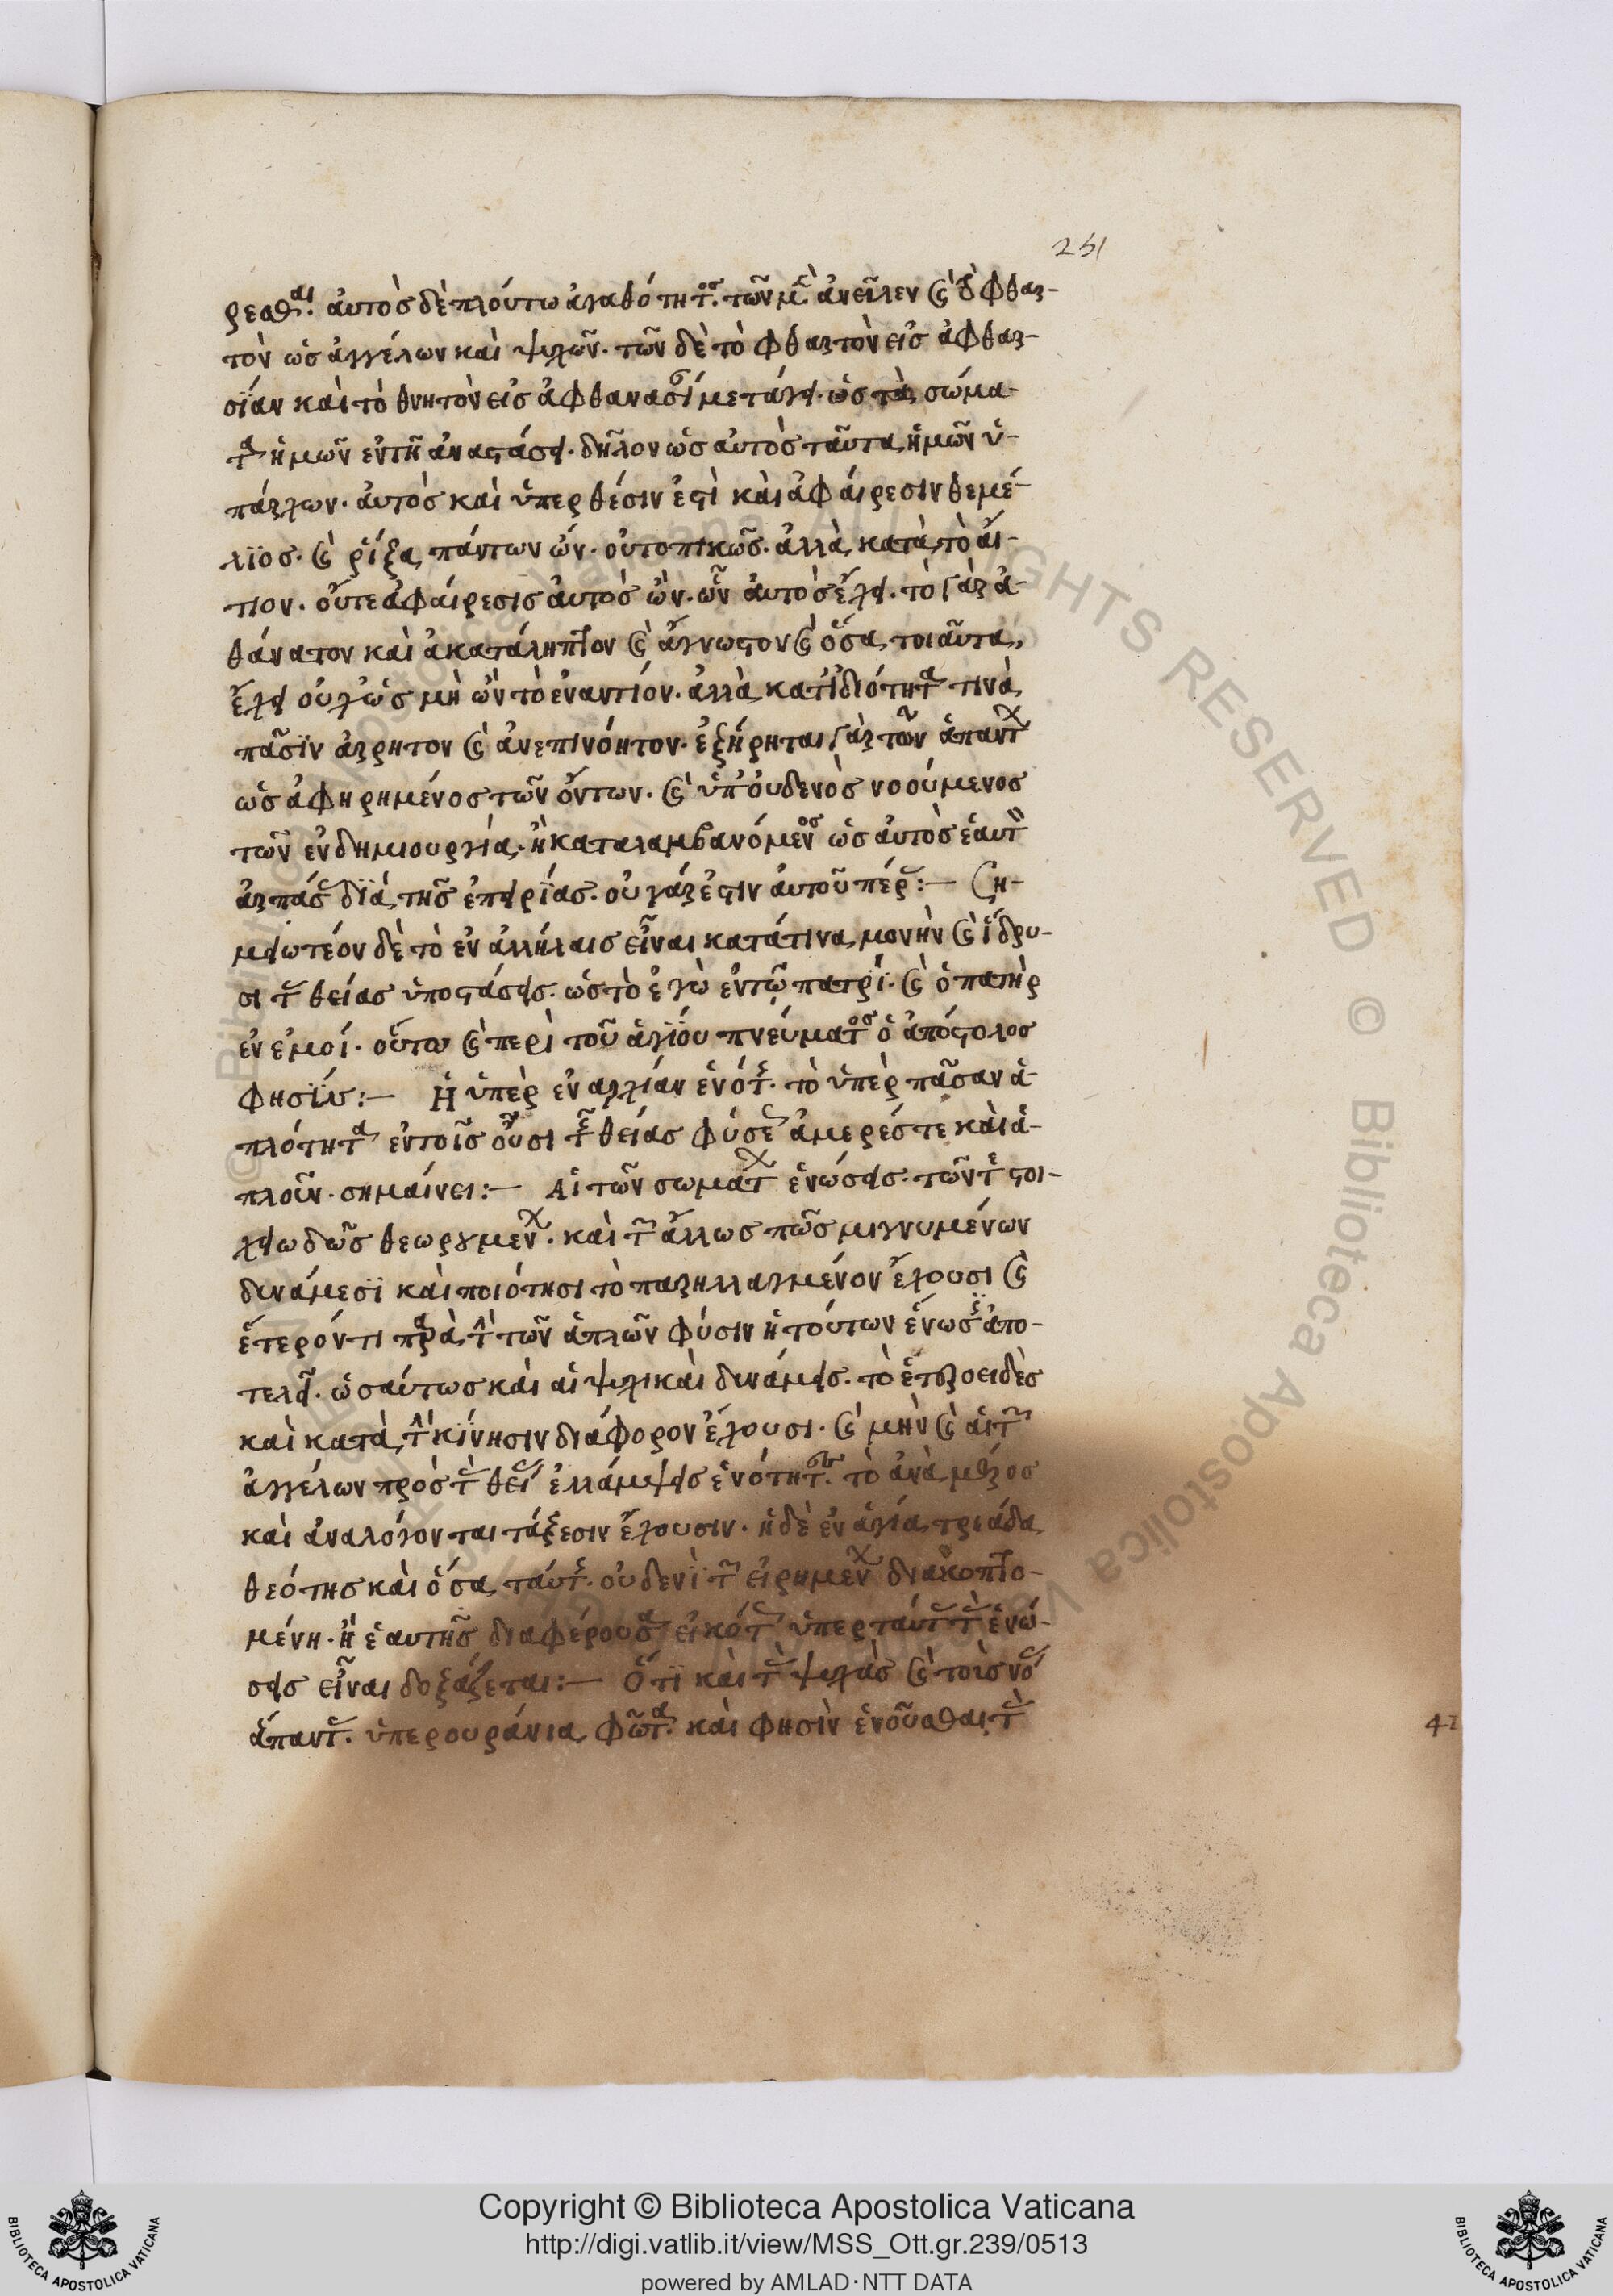 251
ρεσθαι. αὐτὸς δὲ πλούτω ἀγαθότητος. τῶν μὲν ἀνεῖλεν καὶ τὸ φθαρ-
τὸν ὡς ἀγγέλων καὶ ψυχῶν. τῶν δὲ τὸ φθαρτὸν εἰς ἀφθαρ-
σίαν καὶ τὸ θνητὸν εἰς ἀφθανασίαν μετάγει. ὡς τὰ σώμα-
τα ἡμῶν ἐν τῆ ἀναστάσει. δῆλον ὡς αὐτὸς ταῦτα ἡμῶν ὑ-
πάρχων. αὐτὸς καὶ ὑπερ θέσιν ἐστὶ καὶ ἀφαίρεσιν θεμέ-
λιος. καὶ ῥίζα πάντων ὤν. οὐ τοπικῶς. ἀλλὰ κατὰ τὸ αἴ-
τιον. οὔτε ἀφαίρεσις αὐτὸς ὢν. ὧν αὐτὸς ἔχει. τὸ γὰρ ἀ-
θάνατον καὶ ἀκατάληπτον καὶ ἄγνωστον καὶ ὅσα τοιαῦτα,
ἔχει οὐχ ὡς μὴ ὢν τὸ ἐναντίον. ἀλλὰ κατ ἰδιότητα τινὰ
πᾶσιν ἄρρητον καὶ ἀνεπινόητον. ἐξήρηται γὰρ τῶν ἁπάντων
ὡς ἀφηρημένος τῶν ὄντων. καὶ ὑπ οὐδενὸς νοούμενος
τῶν ἐν δημιουργία. ἢ καταλαμβανόμενος ὡς αὐτὸς ἑαυτὸν
ἁρπάσας διὰ τῆς ἀπειρίας. οὐ γάρ ἐστιν αὐτοῦ πέρας:— Ση-
μειωτέον δὲ τὸ ἐν ἀλλήλαις εἶναι κατά τινα μονὴν καὶ ἵδρυ-
σι τὰς θείας ὑποστάσεις. ὡς τὸ ἐγὼ ἐν τῶ πατρί. καὶ ὁ πατὴρ
ἐν ἐμοί. οὕτω καὶ περὶ τοῦ ἁγίου πνεύματος ὁ ἀπόστολος
φησίν:— Ἡ ὑπὲρ ἐναρχίαν ἑνότης. τὸ ὑπὲρ πᾶσαν ἁ-
πλότητα ἐν τοῖς οὖσι τῆς θείας φύσεως ἀμερές τε καὶ ἁ-
πλοῦν. σημαίνει:— Αἱ τῶν σωμάτων ἑνώσεις. τῶν τε στοι-
χειωδῶς θεωρουμένων. καὶ τῶν ἄλλως πῶς μιγνυμένων
δυνάμεσι καὶ ποιότησι τὸ παρηλλαγμένον ἔχουσι καὶ
ἕτερόν τι παρὰ τὴν τῶν ἁπλῶν φύσιν ἡ τούτων ἕνωσις ἀπο-
τελεῖ. ὡσαύτως καὶ αἱ ψυχικαὶ δυνάμεις. τὸ ἑτεροειδὲς
καὶ κατὰ τὴν κίνησιν διάφορον ἔχουσι. καὶ μὴν καὶ αἱ τῶν
ἀγγέλων πρὸς τὰς θείας ἐλλάμψεις ἑνότητες. τὸ ἀνὰ μέρος
καὶ ἀνάλογον ται τάξεσιν ἔχουσιν. ἡ δὲ ἐν ἁγία τριάδα
θεότης καὶ ὅσα ταύτης. οὐδενὶ τῶν εἰρημένων διακοπτο-
μένη. ἢ ἑαυτῆς διαφέρουσα εἰκότως ὑπερ ταύτας τὰς ἑνώ-
σεις εἶναι δοξάζεται:— Ὅτι καὶ τὰς ψυχὰς καὶ τοὺς νόας
ἅπαντας. ὑπερουράνια φῶτα. καὶ φησὶν ἑνοῦσθαι τὰς
Copyright © Biblioteca Apostolica Vaticana
http://digi.vatlib.it/view/MSS_Ott.gr.239/0513
powered by AMLAD·NTT DATA